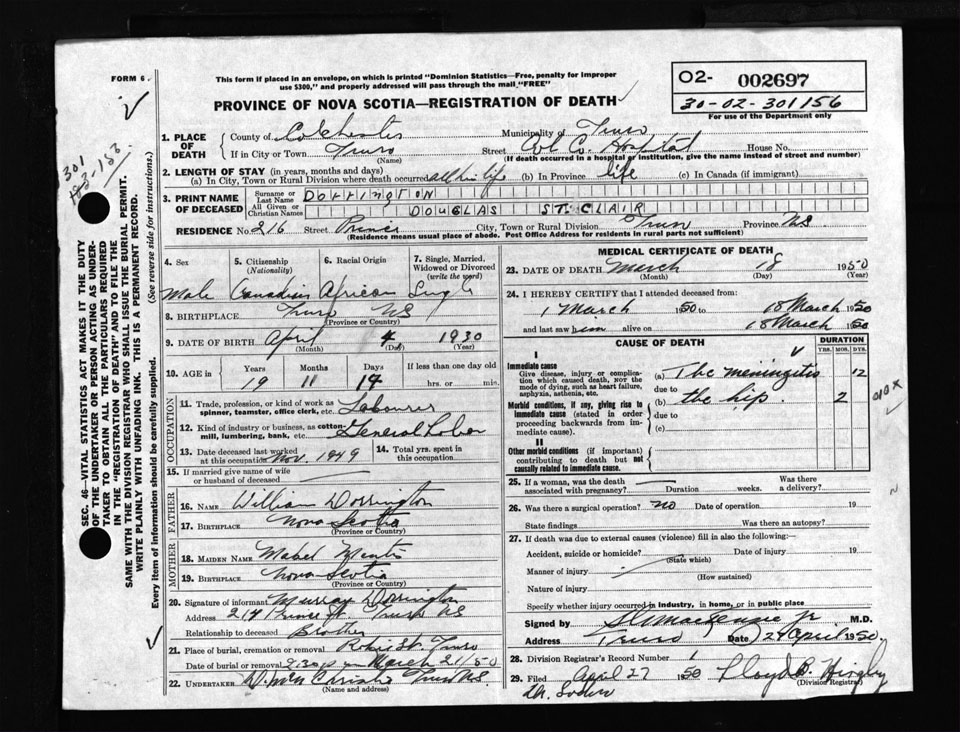 FORM 6.
This form if placed in an envelope, on which is printed "Dominion Statistics—Free, penalty for improper
use $300," and properly addressed will pass through the mail "FREE"
O2- 002697
30-02-301156
For use of the Department only
PROVINCE OF NOVA SCOTIA—REGISTRATION OF DEATH
301
183-183
SEC. 46—VITAL STATISTICS ACT MAKES IT THE DUTY
OF THE UNDERTAKER OR PERSON ACTING AS UNDER-
TAKER TO OBTAIN ALL THE PARTICULARS REQUIRED
IN THE "REGISTRATION OF DEATH" AND TO FILE THE
SAME WITH THE DIVISION REGISTRAR WHO SHALL ISSUE THE BURIAL PERMIT.
WRITE PLAINLY WITH UNFADING INK. THIS IS A PERMANENT RECORD.
Every item of information should be carefully supplied. (See reverse side for instructions.)
1. PLACE OF DEATH
County of Colchester Municipality of Truro
If in City or Town Truro Street Col. Co. Hospital House No.
(Name) (If death occurred in a hospital or institution, give the name instead of street and number)
2. LENGTH OF STAY (in years, months and days)
(a) In City, Town or Rural Division where death occurred all his life (b) In Province life (c) In Canada (if immigrant)
3. PRINT NAME OF DECEASED
Surname or Last Name DORRINGTON
All Given or Christian Names DOUGLAS ST. CLAIR
RESIDENCE No. 216 Street Prince City, Town or Rural Division Truro Province NS
(Residence means usual place of abode. Post Office Address for residents in rural parts not sufficient)
4. Sex 5. Citizenship (Nationality) 6. Racial Origin 7. Single, Married, Widowed or Divorced (write the word)
Male Canadian African Single
8. BIRTHPLACE Truro NS
(Province or Country)
9. DATE OF BIRTH April 4 1930
(Month) (Day) (Year)
10. AGE in Years Months Days If less than one day old
19 11 14 hrs. or min.
OCCUPATION
11. Trade, profession, or kind of work as spinner, teamster, office clerk, etc. Labourer
12. Kind of industry or business, as cotton-mill, lumbering, bank, etc. General Labor
13. Date deceased last worked at this occupation Nov. 1949 14. Total yrs. spent in this occupation
15. If married give name of wife or husband of deceased
FATHER
16. NAME William Dorrington
17. BIRTHPLACE Nova Scotia
(Province or Country)
MOTHER
18. MAIDEN NAME Mabel
19. BIRTHPLACE Nova Scotia
(Province or Country)
20. Signature of informant Murray Dorrington
Address 214 Prince St. Truro NS
Relationship to deceased Brother
21. Place of burial, cremation or removal Robie St. Truro
Date of burial or removal 2.30 p m March 21/50
22. UNDERTAKER Christie Truro N.S.
(Name and address)
MEDICAL CERTIFICATE OF DEATH
23. DATE OF DEATH March 18 1950
(Month) (Day)
24. I HEREBY CERTIFY that I attended deceased from:
1 March 1950 to 18 March 1950
and last saw him alive on 18 March 1950
CAUSE OF DEATH
DURATION
YRS. MOS. DYS.
I
Immediate cause
Give disease, injury or complication which caused death, NOT the mode of dying, such as heart failure, asphyxia, asthenia, etc.
(a) Tbc meningitis 12
due to
Morbid conditions, if any, giving rise to immediate cause (stated in order proceeding backwards from immediate cause).
(b) tbc hip. 2
due to
(c)
010 X
II
Other morbid conditions (if important) contributing to death but not causally related to immediate cause.
25. If a woman, was the death associated with pregnancy? Duration weeks. Was there a delivery?
26. Was there a surgical operation? no Date of operation 19
State findings Was there an autopsy?
27. If death was due to external causes (violence) fill in also the following:
Accident, suicide or homicide? Date of injury 19
(State which)
Manner of injury
(How sustained)
Nature of injury
Specify whether injury occurred in industry, in home, or in public place
Signed by S.G. MacKenzie Jr M.D.
Address Truro Date 24 April 1950
28. Division Registrar's Record Number 1
29. Filed April 27 1950 Lloyd B. Higby
(Division Registrar)